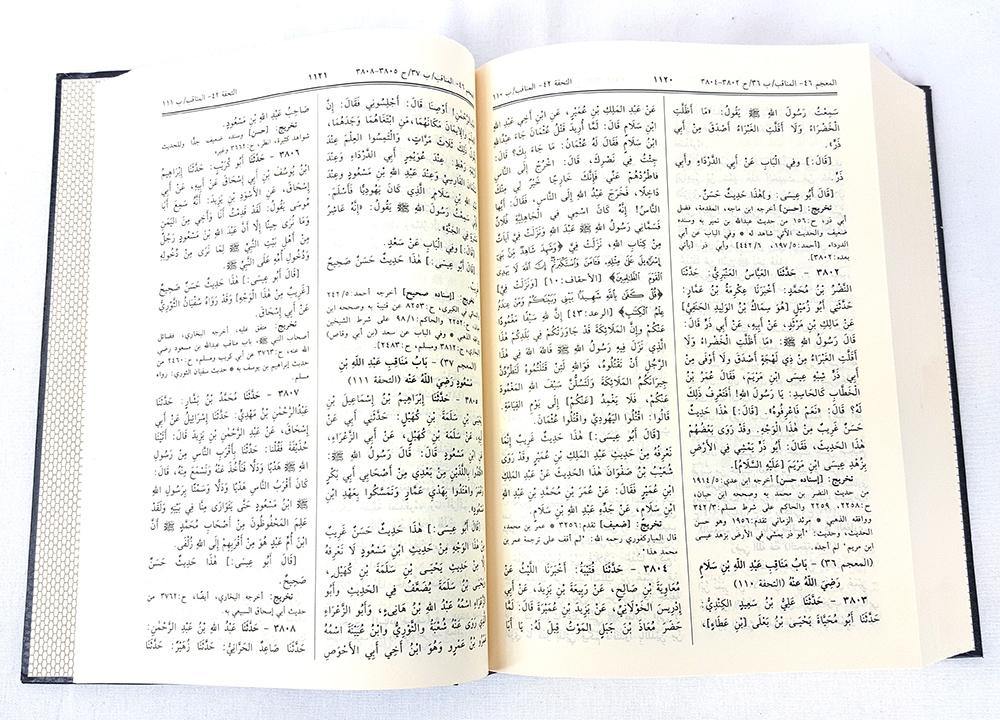 المعجم ٤٦- المناقب/ب ٣٦/ح ٣٨٠٢-٣٨٠٤
١١٢٠
التحفة ٤٢- المناقب/ب ١١٠
سَمِعْتُ رَسُولَ اللهِ ﷺ يَقُولُ: «مَا أَظَلَّتِ
الْخَضْرَاءُ وَلَا أَقَلَّتِ الْغَبْرَاءُ أَصْدَقَ مِنْ أَبِي
ذَرٍّ».
[قَالَ:] وَفِي الْبَابِ عَنْ أَبِي الدَّرْدَاءِ وَأَبِي
ذَرٍّ.
[قَالَ أَبُو عِيسَى: و]هَذَا حَدِيثٌ حَسَنٌ.
تخريج: [حسن] أخرجه ابن ماجه، المقدمة، فضل
أبي ذر، ح:١٥٦ من حديث عبدالله بن نمير به وسنده
ضعيف والحديث الآتي شاهد له * وفي الباب عن أبي
الدرداء [أحمد:٥/١٩٧، ٦/٤٤٢] وأبي ذر [يأتي
بعده:٣٨٠٢].
٣٨٠٢ - حَدَّثَنَا الْعَبَّاسُ الْعَنْبَرِيُّ: حَدَّثَنَا
النَّضْرُ بْنُ مُحَمَّدٍ: أَخْبَرَنَا عِكْرِمَةُ بْنُ عَمَّارٍ:
حَدَّثَنِي أَبُو زُمَيْلٍ [هُوَ سِمَاكُ بْنُ الْوَلِيدِ الْحَنَفِيُّ]
عَنْ مَالِكِ بْنِ مَرْثَدٍ، عَنْ أَبِيهِ، عَنْ أَبِي ذَرٍّ قَالَ:
قَالَ رَسُولُ اللهِ ﷺ: «مَا أَظَلَّتِ الْخَضْرَاءُ وَلَا
أَقَلَّتِ الْغَبْرَاءُ مِنْ ذِي لَهْجَةٍ أَصْدَقَ وَلَا أَوْفَى مِنْ
أَبِي ذَرٍّ شِبْهِ عِيسَى ابْنِ مَرْيَمَ، فَقَالَ عُمَرُ بْنُ
الْخَطَّابِ كَالْحَاسِدِ: يَا رَسُولَ اللهِ! أَفَتَعْرِفُ ذَلِكَ
لَهُ؟ قَالَ: «نَعَمْ فَاعْرِفُوهُ». [قَالَ:] هَذَا حَدِيثٌ
حَسَنٌ غَرِيبٌ مِنْ هَذَا الْوَجْهِ. وَقَدْ رَوَى بَعْضُهُمْ
هَذَا الْحَدِيثَ، فَقَالَ: أَبُو ذَرٍّ يَمْشِي فِي الْأَرْضِ
بِزُهْدِ عِيسَى ابْنِ مَرْيَمَ [عَلَيْهِ السَّلَامُ].
تخريج: [إسناده حسن] أخرجه ابن عدي:٥/١٩١٤
من حديث النضر بن محمد به وصححه ابن حبان،
ح:٢٢٥٨، ٢٢٥٩ والحاكم على شرط مسلم:٣/٣٤٢
ووافقه الذهبي * مرثد الزماني تقدم:١٩٥٦ وهو حسن
الحديث، وحديث: "أبو ذر يمشي في الأرض بزهد عيسى
ابن مريم" لم أجده.
(المعجم ٣٦) - بَابُ مَنَاقِبِ عَبْدِ اللهِ بْنِ سَلَامٍ
رَضِيَ اللهُ عَنْهُ (التحفة ١١٠)
٣٨٠٣ - حَدَّثَنَا عَلِيُّ بْنُ سَعِيدٍ الْكِنْدِيُّ:
حَدَّثَنَا أَبُو مُحَيَّاةَ يَحْيَى بْنُ يَعْلَى [بْنِ عَطَاءٍ]،
عَنْ عَبْدِ الْمَلِكِ بْنِ عُمَيْرٍ، عَنِ ابْنِ أَخِي عَبْدِ اللهِ
ابْنِ سَلَامٍ قَالَ: لَمَّا أُرِيدَ قَتْلُ عُثْمَانَ جَاءَ عَبْدُ اللهِ
ابْنُ سَلَامٍ فَقَالَ لَهُ عُثْمَانُ: مَا جَاءَ بِكَ؟ قَالَ:
جِئْتُ فِي نَصْرِكَ، قَالَ: اخْرُجْ إِلَى النَّاسِ
فَاطْرُدْهُمْ عَنِّي فَإِنَّكَ خَارِجًا خَيْرٌ لِي مِنْكَ
دَاخِلًا، فَخَرَجَ عَبْدُ اللهِ إِلَى النَّاسِ، فَقَالَ: أَيُّهَا
النَّاسُ! إِنَّهُ كَانَ اسْمِي فِي الْجَاهِلِيَّةِ فُلَانٌ
فَسَمَّانِي رَسُولُ اللهِ ﷺ عَبْدَ اللهِ وَنَزَلَتْ فِيَّ آيَاتٌ
مِنْ كِتَابِ اللهِ، نَزَلَتْ فِيَّ ﴿وَشَهِدَ شَاهِدٌ مِنْ بَنِي
إِسْرَائِيلَ عَلَى مِثْلِهِ فَآمَنَ وَاسْتَكْبَرْتُمْ إِنَّ اللهَ لَا يَهْدِي
الْقَوْمَ الظَّالِمِينَ﴾ [الأحقاف:١٠] وَنَزَلَتْ فِيَّ
﴿قُلْ كَفَى بِاللهِ شَهِيدًا بَيْنِي وَبَيْنَكُمْ وَمَنْ عِنْدَهُ
عِلْمُ الْكِتَابِ﴾ [الرعد:٤٣] إِنَّ لِلهِ سَيْفًا مَغْمُودًا
عَنْكُمْ وَإِنَّ الْمَلَائِكَةَ قَدْ جَاوَرَتْكُمْ فِي بَلَدِكُمْ هَذَا
الَّذِي نَزَلَ فِيهِ رَسُولُ اللهِ ﷺ فَاللهَ اللهَ فِي هَذَا
الرَّجُلِ أَنْ تَقْتُلُوهُ، فَوَاللهِ لَئِنْ قَتَلْتُمُوهُ لَتَطْرُدُنَّ
جِيرَانَكُمُ الْمَلَائِكَةَ وَلَتَسُلُّنَّ سَيْفَ اللهِ الْمَغْمُودَ
عَنْكُمْ، فَلَا يُغْمَدُ [عَنْكُمْ] إِلَى يَوْمِ الْقِيَامَةِ.
قَالُوا: اقْتُلُوا الْيَهُودِيَّ وَاقْتُلُوا عُثْمَانَ.
[قَالَ أَبُو عِيسَى:] هَذَا حَدِيثٌ غَرِيبٌ إِنَّمَا
نَعْرِفُهُ مِنْ حَدِيثِ عَبْدِ الْمَلِكِ بْنِ عُمَيْرٍ. وَقَدْ رَوَى
شُعَيْبُ بْنُ صَفْوَانَ هَذَا الْحَدِيثَ عَنْ عَبْدِ الْمَلِكِ
ابْنِ عُمَيْرٍ فَقَالَ: عَنْ عُمَرَ بْنِ مُحَمَّدِ بْنِ عَبْدِ اللهِ
ابْنِ سَلَامٍ، عَنْ جَدِّهِ عَبْدِ اللهِ بْنِ سَلَامٍ.
تخريج: [ضعيف] تقدم:٣٢٥٦ * عمر بن محمد،
قال المباركفوري رحمه الله: "لم أقف على ترجمة عمر بن
محمد هذا".
٣٨٠٤ - حَدَّثَنَا قُتَيْبَةُ: أَخْبَرَنَا اللَّيْثُ عَنْ
مُعَاوِيَةَ بْنِ صَالِحٍ، عَنْ رَبِيعَةَ بْنِ يَزِيدَ، عَنْ أَبِي
إِدْرِيسَ الْخَوْلَانِيِّ، عَنْ يَزِيدَ بْنِ عُمَيْرَةَ قَالَ: لَمَّا
حَضَرَ مُعَاذَ بْنَ جَبَلٍ الْمَوْتُ قِيلَ لَهُ: يَا أَبَا
٤٦- المناقب/ب ٣٧/ح ٣٨٠٥-٣٨٠٨
١١٢١
التحفة ٤٢- المناقب/ب ١١١
أَوْصِنَا قَالَ: أَجْلِسُونِي فَقَالَ: إِنَّ
وَالْإِيمَانَ مَكَانَهُمَا، مَنِ ابْتَغَاهُمَا وَجَدَهُمَا،
ذَلِكَ ثَلَاثَ مَرَّاتٍ، وَالْتَمِسُوا الْعِلْمَ عِنْدَ
رَهْطٍ: عِنْدَ عُوَيْمِرٍ أَبِي الدَّرْدَاءِ وَعِنْدَ
الْفَارِسِيِّ وَعِنْدَ عَبْدِ اللهِ بْنِ مَسْعُودٍ وَعِنْدَ
بْنِ سَلَامٍ الَّذِي كَانَ يَهُودِيًّا فَأَسْلَمَ،
سَمِعْتُ رَسُولَ اللهِ ﷺ يَقُولُ: «إِنَّهُ عَاشِرُ
فِي الْجَنَّةِ».
[قَالَ:] وَفِي الْبَابِ عَنْ سَعْدٍ.
[قَالَ أَبُو عِيسَى:] هَذَا حَدِيثٌ حَسَنٌ صَحِيحٌ
تخريج: [إسناده صحيح] أخرجه أحمد:٥/٢٤٢
في الكبرى، ح:٨٢٥٣ عن قتيبة به وصححه ابن
ح:٢٢٥٢ والحاكم:١/٩٨ على شرط الشيخين
الذهبي * وفي الباب عن سعد [بن أبي وقاص]
ح:٣٨١٢ ومسلم، ح:٢٤٨٣].
(المعجم ٣٧) - بَابُ مَنَاقِبِ عَبْدِ اللهِ بْنِ
مَسْعُودٍ رَضِيَ اللهُ عَنْهُ (التحفة ١١١)
٣٨٠٥ - حَدَّثَنَا إِبْرَاهِيمُ بْنُ إِسْمَاعِيلَ بْنِ
بْنِ سَلَمَةَ بْنِ كُهَيْلٍ: حَدَّثَنِي أَبِي عَنْ
عَنْ سَلَمَةَ بْنِ كُهَيْلٍ، عَنْ أَبِي الزَّعْرَاءِ،
ابْنِ مَسْعُودٍ قَالَ: قَالَ رَسُولُ اللهِ ﷺ:
اقْتَدُوا بِاللَّذَيْنِ مِنْ بَعْدِي مِنْ أَصْحَابِي أَبِي بَكْرٍ
وَعُمَرَ وَاهْتَدُوا بِهَدْيِ عَمَّارٍ وَتَمَسَّكُوا بِعَهْدِ ابْنِ
[قَالَ أَبُو عِيسَى:] هَذَا حَدِيثٌ حَسَنٌ غَرِيبٌ
هَذَا الْوَجْهِ مِنْ حَدِيثِ ابْنِ مَسْعُودٍ لَا نَعْرِفُهُ
مِنْ حَدِيثِ يَحْيَى بْنِ سَلَمَةَ بْنِ كُهَيْلٍ،
بْنُ سَلَمَةَ يُضَعَّفُ فِي الْحَدِيثِ وَأَبُو
الزَّعْرَاءِ اسْمُهُ عَبْدُ اللهِ بْنُ هَانِىءٍ، وَأَبُو الزَّعْرَاءِ
الَّذِي رَوَى عَنْهُ شُعْبَةُ وَالثَّوْرِيُّ وَابْنُ عُيَيْنَةَ اسْمُهُ
عَمْرُو بْنُ عَمْرٍو وَهُوَ ابْنُ أَخِي أَبِي الْأَحْوَصِ
صَاحِبُ عَبْدِ اللهِ بْنِ مَسْعُودٍ.
تخريج: [حسن] وسنده ضعيف جدًا وللحديث
شواهد كثيرة، انظر، ح:٣٦٦٢ وغيره.
٣٨٠٦ - حَدَّثَنَا أَبُو كُرَيْبٍ: حَدَّثَنَا إِبْرَاهِيمُ
ابْنُ يُوسُفَ بْنِ أَبِي إِسْحَاقَ، عَنْ أَبِيهِ، عَنْ أَبِي
إِسْحَاقَ، عَنِ الْأَسْوَدِ بْنِ يَزِيدَ: أَنَّهُ سَمِعَ أَبَا
مُوسَى يَقُولُ: لَقَدْ قَدِمْتُ أَنَا وَأَخِي مِنَ الْيَمَنِ
وَمَا نُرَى حِينًا إِلَّا أَنَّ عَبْدَ اللهِ بْنَ مَسْعُودٍ رَجُلٌ
مِنْ أَهْلِ بَيْتِ النَّبِيِّ ﷺ لِمَا نَرَى مِنْ دُخُولِهِ
وَدُخُولِ أُمِّهِ عَلَى النَّبِيِّ ﷺ.
[قَالَ أَبُو عِيسَى:] هَذَا حَدِيثٌ حَسَنٌ صَحِيحٌ
[غَرِيبٌ مِنْ هَذَا الْوَجْهِ] وَقَدْ رَوَاهُ سُفْيَانُ الثَّوْرِيُّ
عَنْ أَبِي إِسْحَاقَ.
تخريج: متفق عليه، أخرجه البخاري، فضائل
أصحاب النبي ﷺ، باب مناقب عبدالله بن مسعود رضي
الله عنه، ح:٣٧٦٣ عن أبي كريب ومسلم، ح:٢٤٦٠ من
حديث إبراهيم بن يوسف به * حديث سفيان الثوري: رواه
مسلم.
٣٨٠٧ - حَدَّثَنَا مُحَمَّدُ بْنُ بَشَّارٍ: حَدَّثَنَا
عَبْدُالرَّحْمَنِ بْنُ مَهْدِيٍّ: حَدَّثَنَا إِسْرَائِيلُ عَنْ أَبِي
إِسْحَاقَ، عَنْ عَبْدِ الرَّحْمَنِ بْنِ يَزِيدَ قَالَ: أَتَيْنَا
حُذَيْفَةَ فَقُلْنَا: حَدِّثْنَا بِأَقْرَبِ النَّاسِ مِنْ رَسُولِ
اللهِ ﷺ هَدْيًا وَدَلًّا فَنَأْخُذَ عَنْهُ وَنَسْمَعَ مِنْهُ، قَالَ:
كَانَ أَقْرَبُ النَّاسِ هَدْيًا وَدَلًّا وَسَمْتًا بِرَسُولِ اللهِ
ﷺ ابْنَ مَسْعُودٍ حَتَّى يَتَوَارَى مِنَّا فِي بَيْتِهِ وَلَقَدْ
عَلِمَ الْمَحْفُوظُونَ مِنْ أَصْحَابِ مُحَمَّدٍ ﷺ أَنَّ
ابْنَ أُمِّ عَبْدٍ هُوَ مِنْ أَقْرَبِهِمْ إِلَى اللهِ زُلْفَى.
[قَالَ أَبُو عِيسَى:] هَذَا حَدِيثٌ حَسَنٌ
صَحِيحٌ.
تخريج: أخرجه البخاري، أيضًا، ح:٣٧٦٢ من
حديث أبي إسحاق السبيعي به.
٣٨٠٨ - حَدَّثَنَا عَبْدُ اللهِ بْنُ عَبْدِ الرَّحْمَنِ:
حَدَّثَنَا صَاعِدٌ الْحَرَّانِيُّ: حَدَّثَنَا زُهَيْرٌ: حَدَّثَنَا